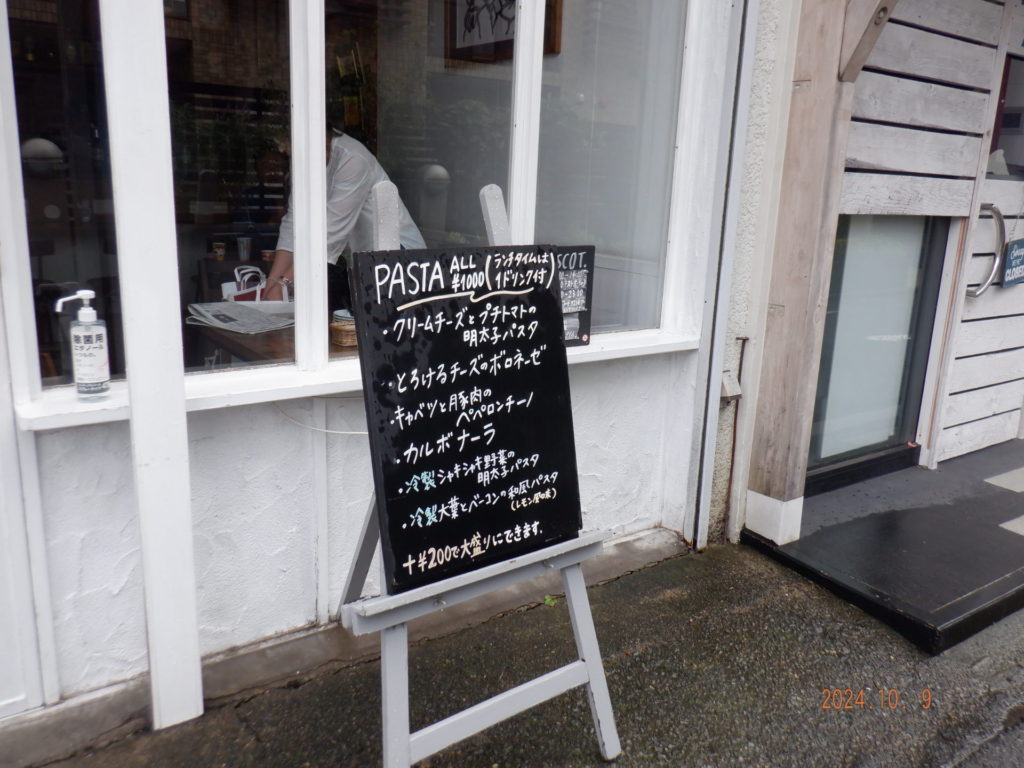 PASTA ALL ¥1000 (ランチタイムは 1ドリンク付)
・クリームチーズとプチトマトの
明太子パスタ
・とろけるチーズのボロネーゼ
・キャベツと豚肉の
ペペロンチーノ
・カルボナーラ
・冷製シャキシャキ野菜の
明太子パスタ
・冷製大葉とベーコンの和風パスタ
(レモン風味)
+¥200で大盛りにできます.
SCOT.
除菌用
エタノール
CLOSED
2024 10 9